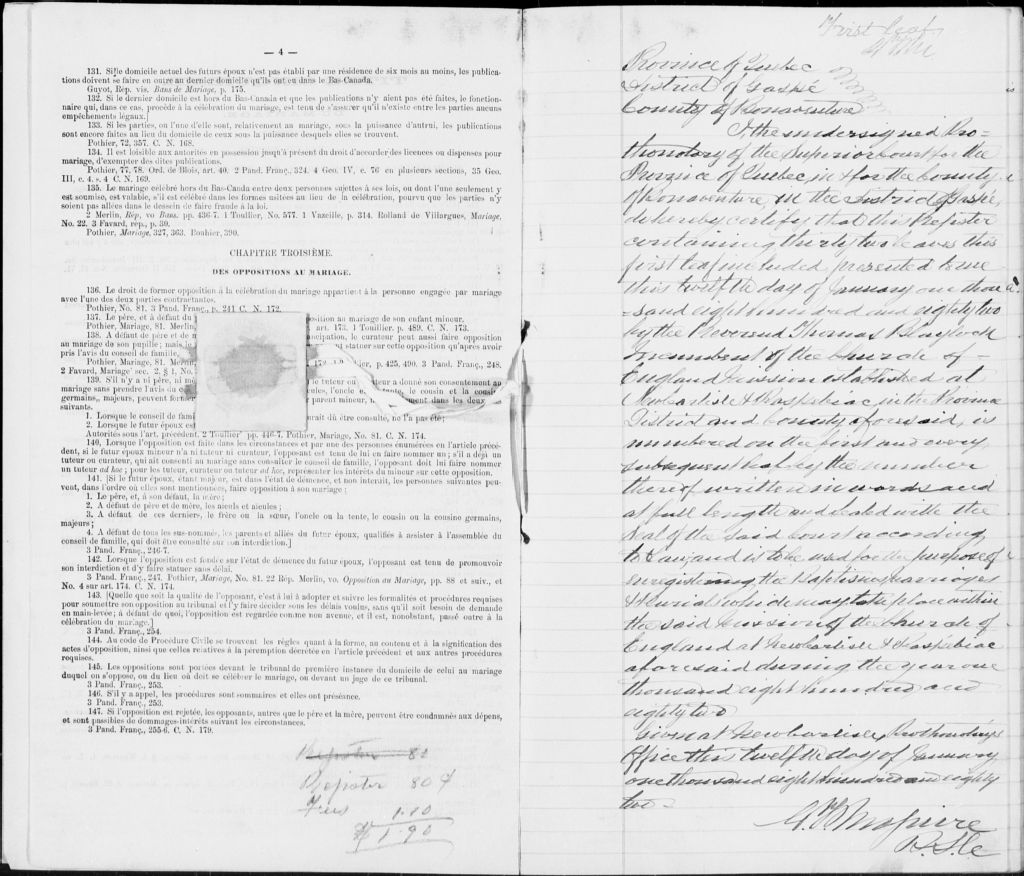 — 4 —
131. Si le domicile actuel des futurs époux n'est pas établi par une résidence de six mois au moins, les publica-
tions doivent se faire en outre au dernier domicile qu'ils ont eu dans le Bas-Canada.
Guyot, Rép. vis. Bans de Mariage, p. 175.
132. Si le dernier domicile est hors du Bas-Canada et que les publications n'y aient pas été faites, le fonction-
naire qui, dans ce cas, procède à la célébration du mariage, est tenu de s'assurer qu'il n'existe entre les parties aucuns
empêchements légaux.]
133. Si les parties, ou l'une d'elles sont, relativement au mariage, sous la puissance d'autrui, les publications
sont encore faites au lieu du domicile de ceux sous la puissance desquels elles se trouvent.
Pothier, 72, 357. C. N. 168.
134. Il est loisible aux autorités en possession jusqu'à présent du droit d'accorder des licences ou dispenses pour
mariage, d'exempter des dites publications.
Pothier, 77, 78. Ord. de Blois, art. 40. 2 Pand. Franç., 324. 4 Geo. IV, c. 76 en plusieurs sections, 35 Geo.
III, c. 4, s. 4 C. N. 169.
135. Le mariage célébré hors du Bas-Canda entre deux personnes sujettes à ses lois, ou dont l'une seulement y
est soumise, est valable, s'il est célébré dans les formes usitées au lieu de la célébration, pourvu que les parties n'y
soient pas allées dans le dessein de faire fraude à la loi.
2 Merlin, Rép, vo Bans. pp. 436-7. 1 Toullier, No. 577. 1 Vazeille, p. 314. Rolland de Villargues, Mariage,
No. 22. 3 Favard, rép., p. 30.
Pothier, Mariage, 327, 363. Bouhier, 390.
CHAPITRE TROISIÈME.
DES OPPOSITIONS AU MARIAGE.
136. Le droit de former opposition à la célébration du mariage appartient à la personne engagée par mariage
avec l'une des deux parties contractantes.
Pothier, No. 81. 3 Pand. Franç., p. 241 C. N. 172.
137. Le père, et à défaut du osition au mariage de son enfant mineur.
Pothier, Mariage, 81. Merlin, art. 173. 1 Touilier. p. 489. C. N. 173.
138. A défaut de père et de m ncipation, le curateur peut aussi faire opposition
au mariage de son pupille; mais le statuer sur cette opposition qu'après avoir
pris l'avis du conseil de famille,
Pothier, Mariage, 81. Merlin, p. 425, 490. 3 Pand. Franç., 248.
2 Favard, Mariage' sec. 2. § 1, No.
139. S'il n'y a ni père, ni mè le tuteur ou curateur a donné son consentement au
mariage sans prendre l'avis du c les, l'oncle et la tante, le cousin et la cousine
germains, majeurs, peuvent former parent mineur, dans les deux cas
suivants.
1. Lorsque le conseil de fami rait dû être consulté, ne l'a pas été;
2. Lorsque le futur époux est
Autorités sous l'art. précédent. 2 Toullier pp. 446-7. Pothier, Mariage, No. 81. C. N. 174.
140. Lorsque l'opposition est faite dans les circonstances et par une des personnes énumérées en l'article précé-
dent, si le futur époux mineur n'a ni tuteur ni curateur, l'opposant est tenu de lui en faire nommer un; s'il a déjà un
tuteur ou curateur, qui ait consenti au mariage sans consulter le conseil de famille, l'opposant doit lui faire nommer
un tuteur ad hoc; pour les tuteur, curateur ou tuteur ad hoc, représenter les intérêts du mineur sur cette opposition.
141. [Si le futur époux, étant majeur, est dans l'état de démence, et non interdit, les personnes suivantes peu-
vent, dans l'ordre où elles sont mentionnées, faire opposition à son mariage:
1. Le père, et, à son défaut, la mère;
2. A défaut de père et de mère, les aïeuls et aïeules;
3. A défaut de ces derniers, le frère ou la sœur, l'oncle ou la tente, le cousin ou la cousine germains,
majeurs;
4. A défaut de tous les sus-nommés, les parents et alliés du futur époux, qualifiés à assister à l'assemblée du
conseil de famille, qui doit être consulté sur son interdiction.]
3 Pand. Franç., 246-7.
142. Lorsque l'opposition est fondée sur l'état de démence du futur époux, l'opposant est tenu de promouvoir
son interdiction et d'y faire statuer sans délai.
3 Pand. Franç., 247. Pothier, Mariage, No. 81. 22 Rép. Merlin, vo. Opposition au Mariage, pp. 88 et suiv., et
No. 4 sur art. 174. C. N. 174.
143. [Quelque soit la qualité de l'opposant, c'est à lui à adopter et suivre les formalités et procédures requises
pour soumettre son opposition au tribunal et l'y faire décider sous les délais voulus, sans qu'il soit besoin de demande
en main-levée; à défaut de quoi, l'opposition est regardée comme non avenue, et il est, nonobstant, passé outre à la
célébration du mariage.]
3 Pand. Franç., 254.
144. Au code de Procédure Civile se trouvent les règles quant à la forme, au contenu et à la signification des
actes d'opposition, ainsi que celles relatives à la péremption décrétée en l'article précédent et aux autres procédures
requises.
145. Les oppositions sont portées devant le tribunal de première instance du domicile de celui au mariage
duquel on s'oppose, ou du lieu où doit se célébrer le mariage, ou devant un juge de ce tribunal.
3 Pand. Franç., 253.
146. S'il y a appel, les procédures sont sommaires et elles ont préséance.
3 Pand. Franç., 253.
147. Si l'opposition est rejetée, les opposants, autres que le père et la mère, peuvent être condamnés aux dépens,
et sont passibles de dommages-intérêts suivant les circonstances.
3 Pand. Franç., 255-6. C. N. 179.
Register 80
Register 80 ¢
Fees 1.10
1.90
First leaf
Province of Quebec
District of Gaspé
County of Bonaventure
I, the undersigned Pro=
thonotary of the Superior Court for the
Province of Quebec, in & for the County
of Bonaventure, in the District of Gaspé,
do hereby certify that this Register
containing thirty two leaves this
first leaf included presented to me
this twelfth day of January one thou
=sand eight hundred and eighty two
by the Reverend Thomas
of the Church of =
England Mission established at
New Carlisle & Paspebiac in the Province
District and County aforesaid, is
numbered on the first and every
subsequent leaf by the number
thereof written in words and
at full length and sealed with the
Seal of the said Court according
to Law, and is to be used for the purpose of
enregistering the Baptisms, marriages
& burials which may take place within
the said Mission of the Church of
England at New Carlisle & Paspebiac
aforesaid during the year one
thousand eight hundred and
eighty two
Given at New Carlisle, Prothonotary's
Office this twelfth day of January
one thousand eight hundred and eighty
two =
P.S.C.